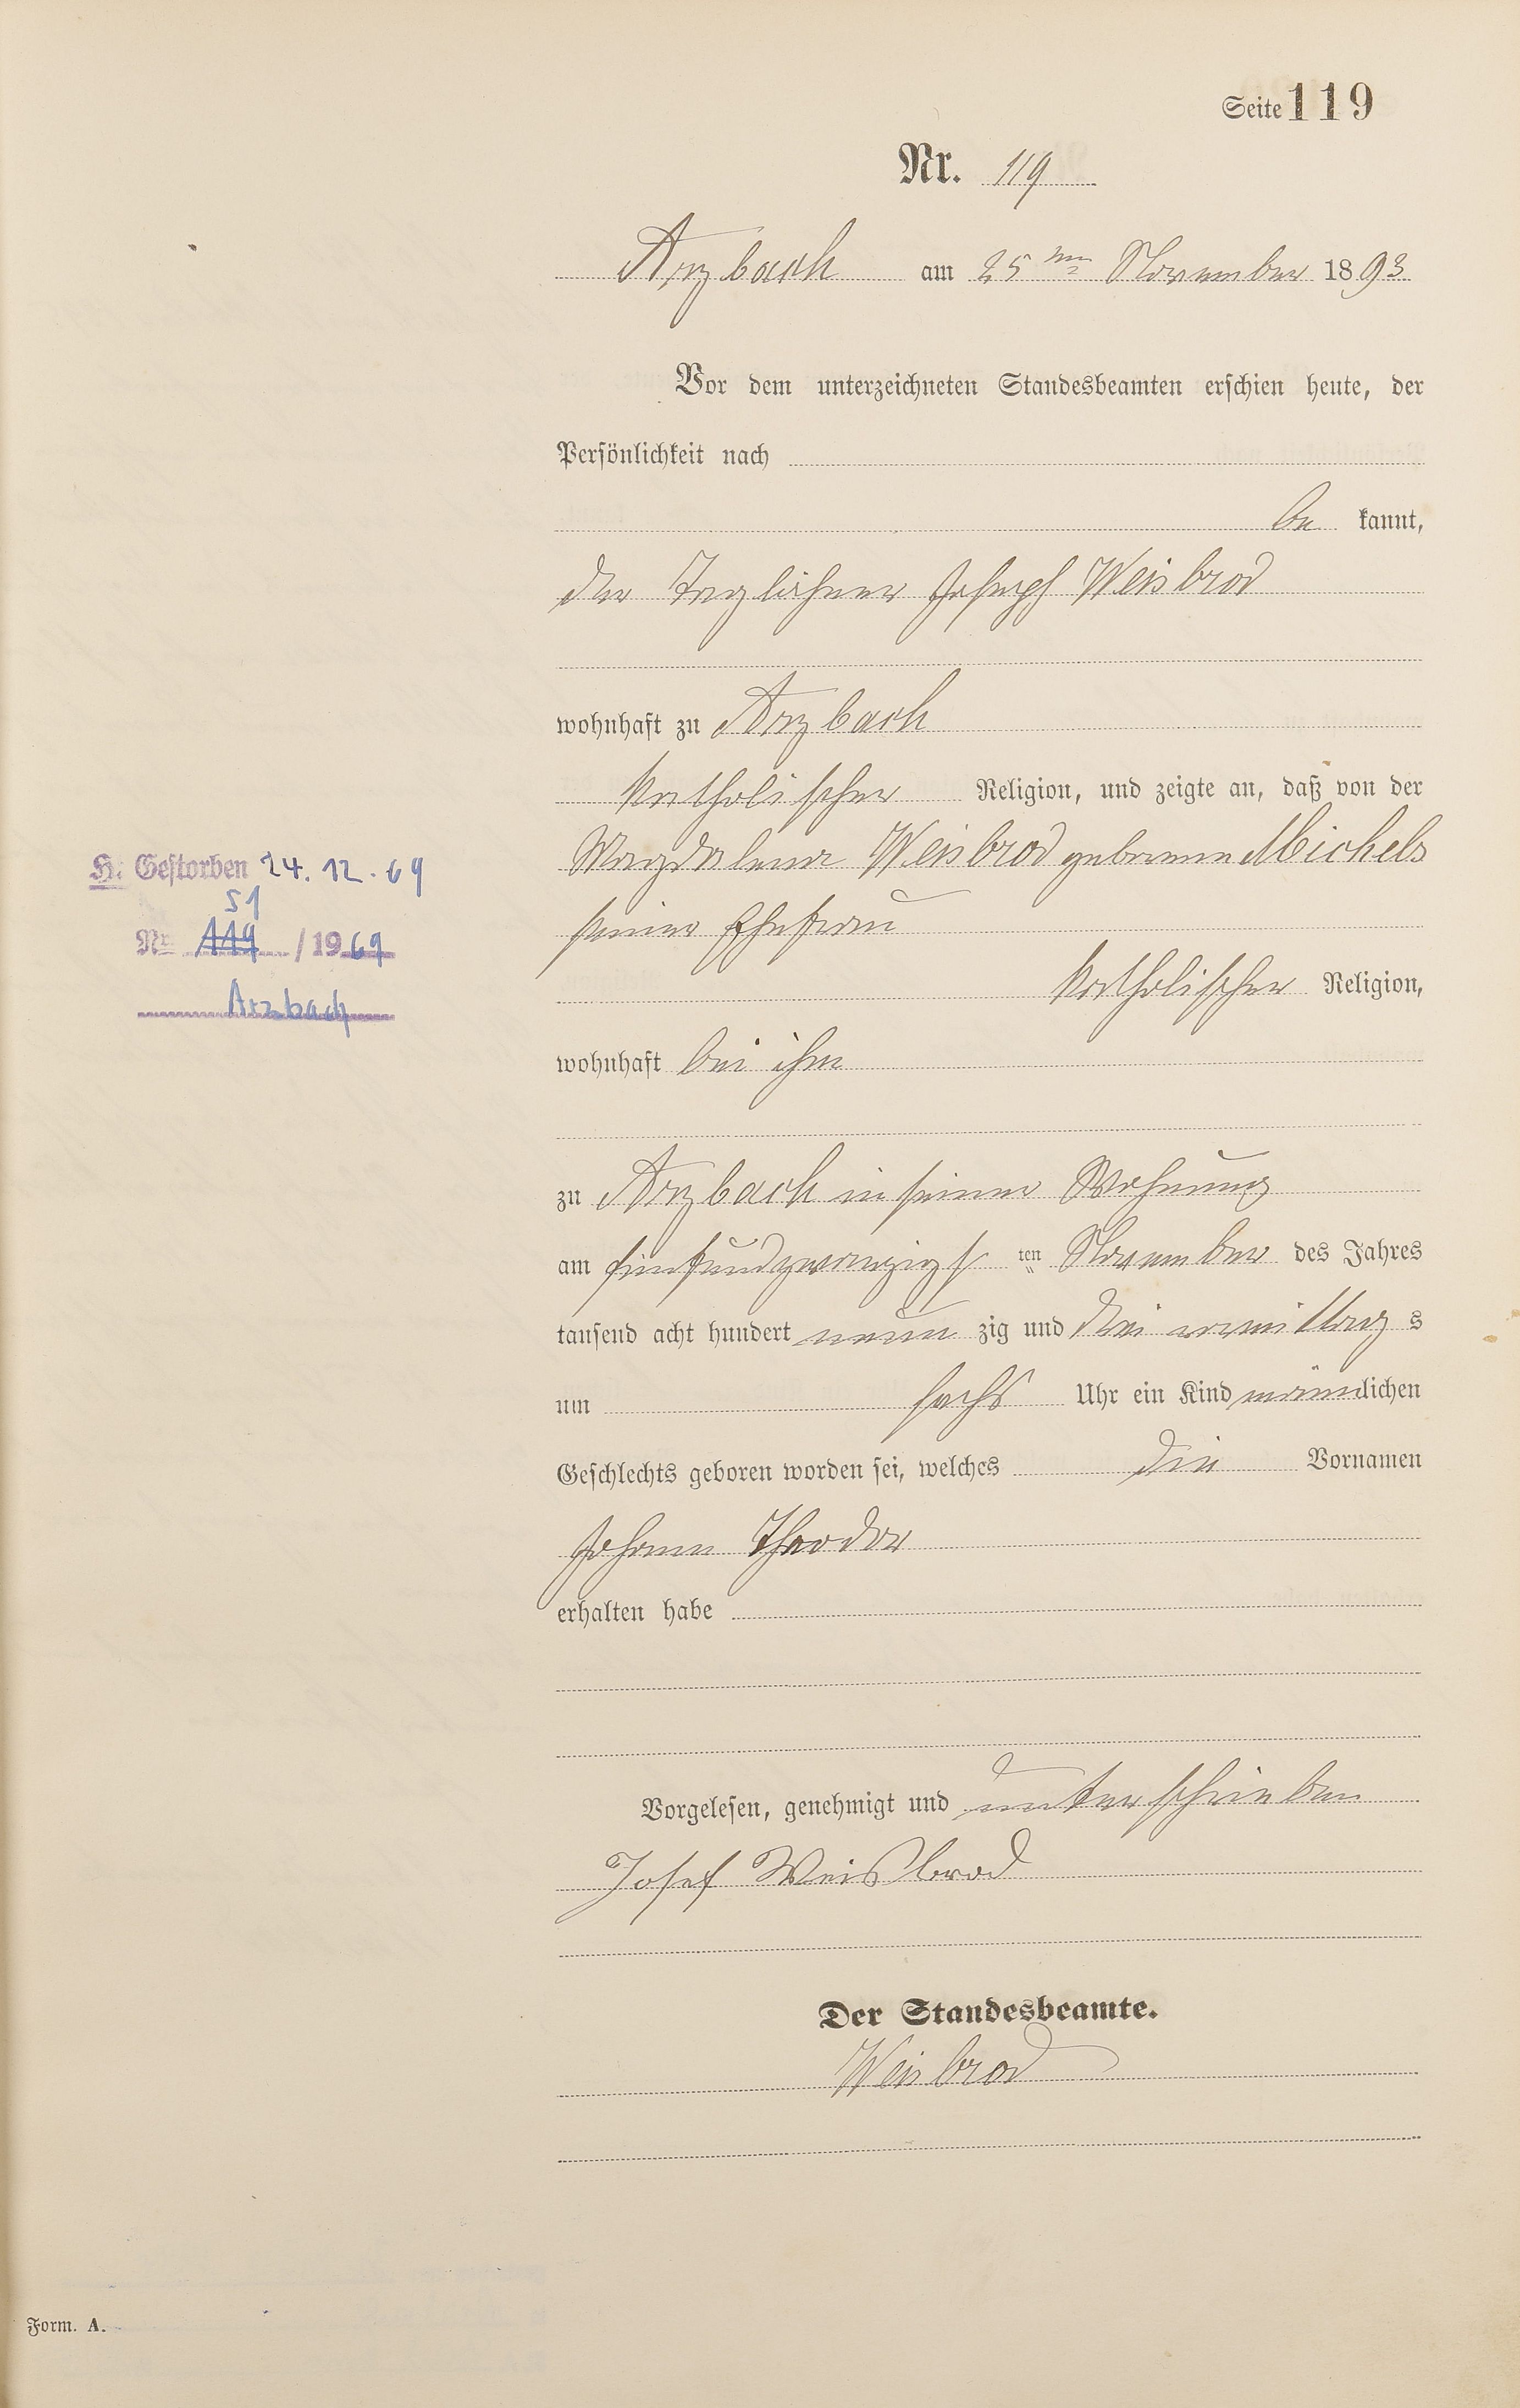 Seite 119
Nr. 119
Arzbach am 25ten November 1893
Vor dem unterzeichneten Standesbeamten erschien heute, der
Persönlichkeit nach
be kannt,
der Taglöhner Joseph Weisbrod
wohnhaft zu Arzbach
katholischer Religion, und zeigte an, daß von der
Magdalena Weisbrod geborene Michels
seiner Ehefrau
katholischer Religion,
wohnhaft bei ihm
zu Arzbach in seiner Wohnung
am fünfundzwanzigst ten November des Jahres
tausend acht hundert neun zig und drei vormittag s
um sechs Uhr ein Kind männlichen
Geschlechts geboren worden sei, welches die Vornamen
Johann Theodor
erhalten habe
Vorgelesen, genehmigt und unterschrieben
Josef Weißbrod
Der Standesbeamte.
Weisbrod
H. Gestorben 24.12.69
51
Nr. 119 / 1969
Arzbach
Form. A.